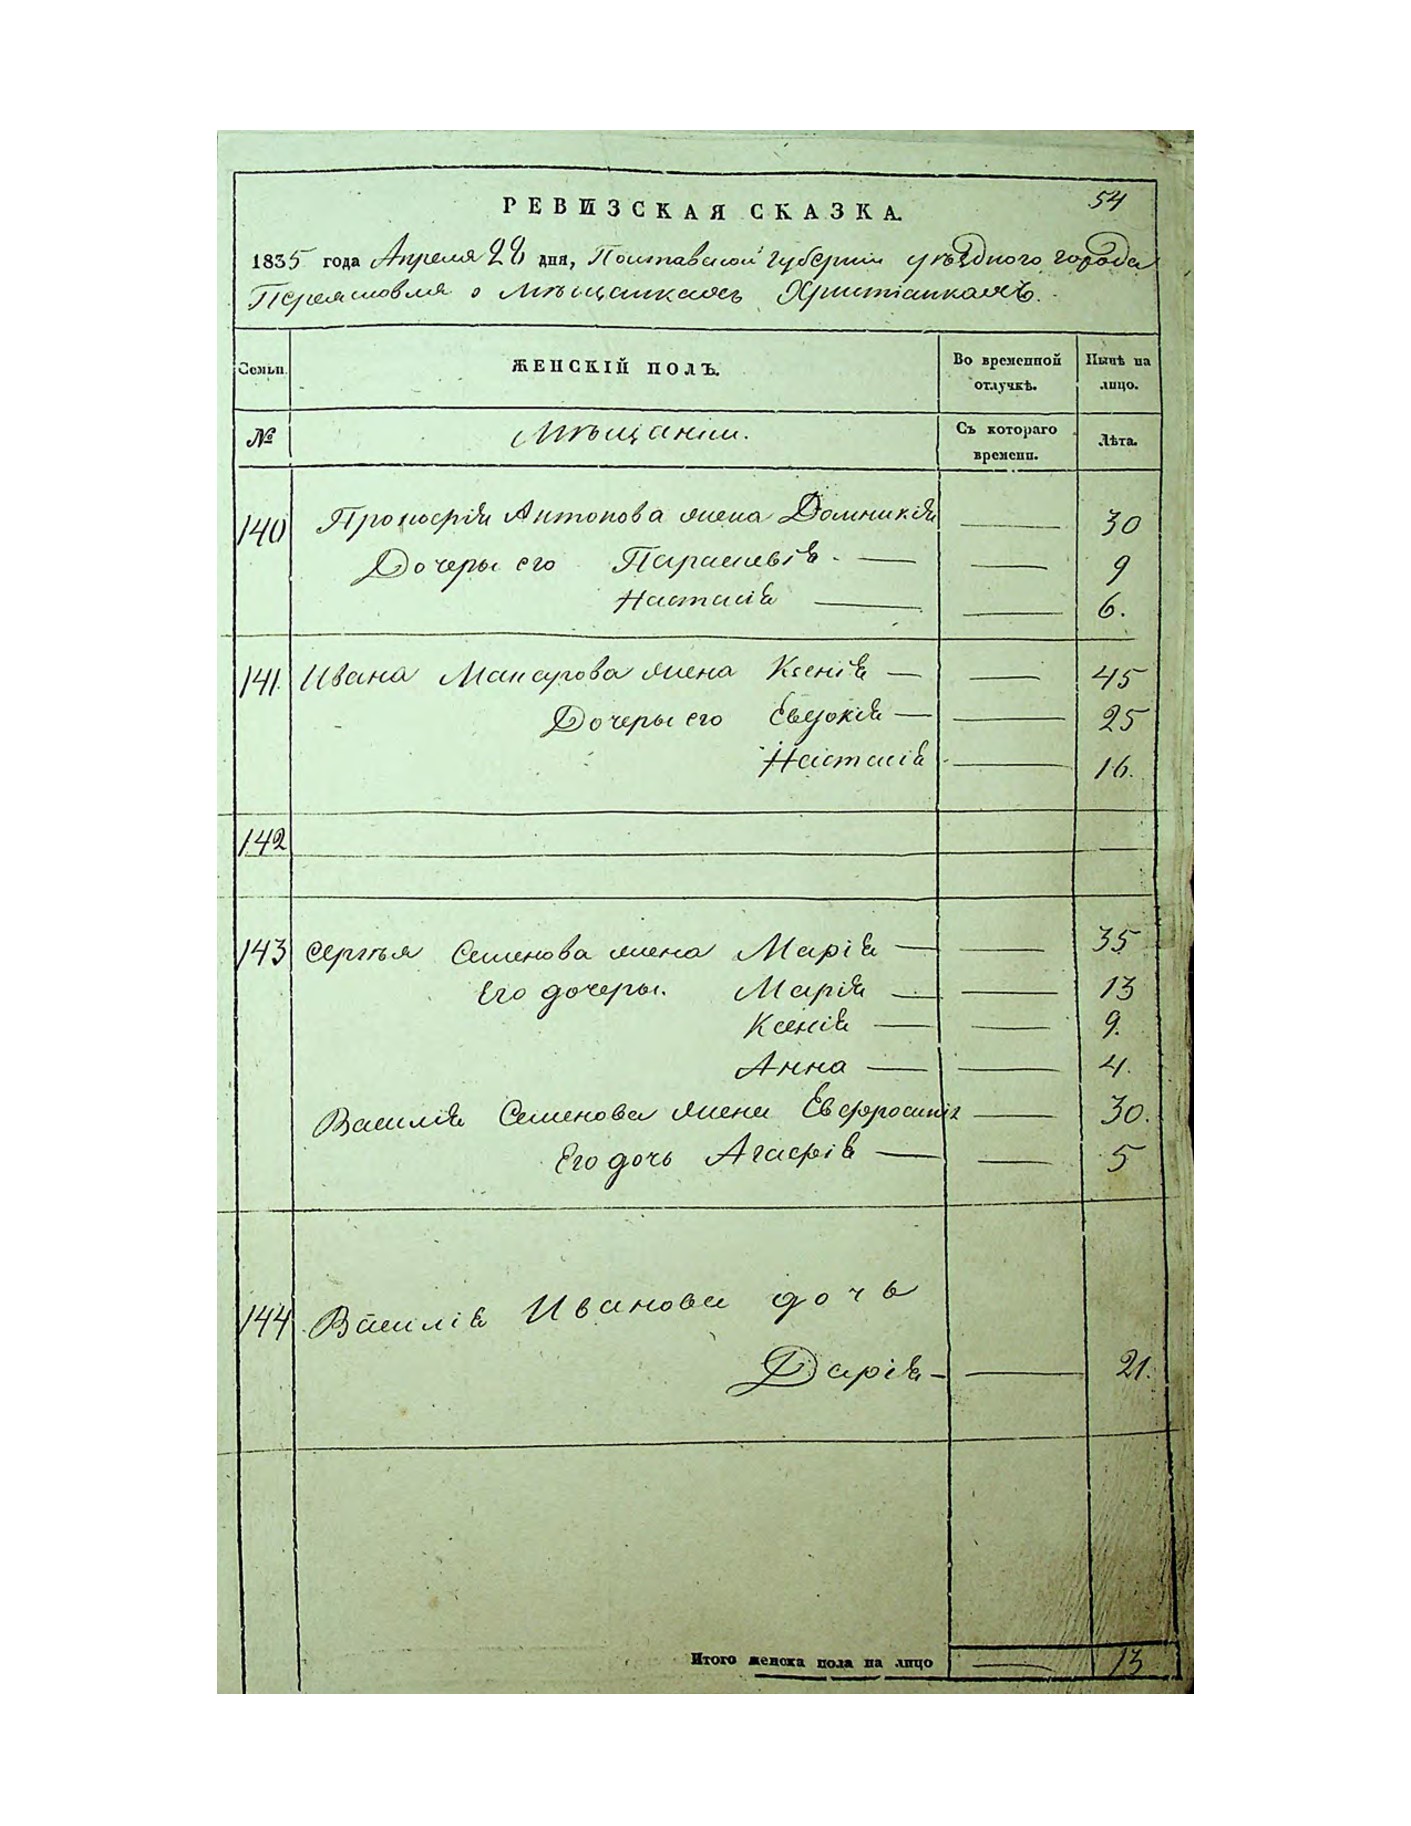 54
РЕВИЗСКАЯ СКАЗКА.
1835 года Апреля 28 дня, Полтавской Губернии уѣздного города
Переяславля о Мѣщанкахъ Христіанкахъ.
Семьи. ЖЕНСКІЙ ПОЛЪ. Во временной отлучкѣ. Нынѣ на лицо.
№ Мѣщаніи. Съ котораго времени. Лѣта.
140 Прокофія Антонова жена Домникія — 30
Дочеры его Параскевія — — 9
Настасія — — 6.
141. Ивана Макарова жена Ксенія — — 45
Дочеры его Евдокія — — 25
Настасія — 16.
142
143 Сергѣя Семенова жена Марія — — 35
Его дочеры. Марія — — 13
Ксенія — — 9.
Анна — — 4.
Василія Семенова жена Евфросинія — 30.
Его дочь Агафія — — 5
144. Василія Иванова дочь
Дарія — — 21.
Итого женска пола на лицо — 13